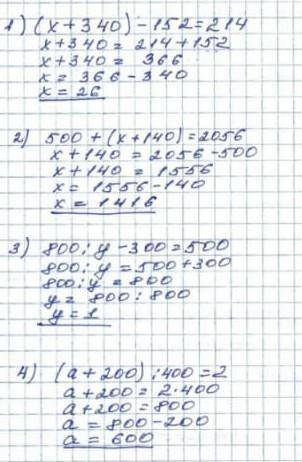 1) (x+340)-152=214
x+340= 214+152
x+340= 366
x= 366-340
x= 26
2) 500+(x+140)=2056
x+140=2056-500
x+140=1556
x= 1556-140
x= 1416
3) 800:y-300=500
800:y=500+300
800:y=800
y= 800:800
y=1
4) (a+200):400=2
a+200=2·400
a+200=800
a=800-200
a=600